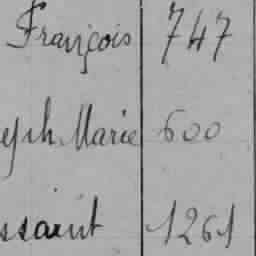 François 747
eph Marie 600
ssaint 1261